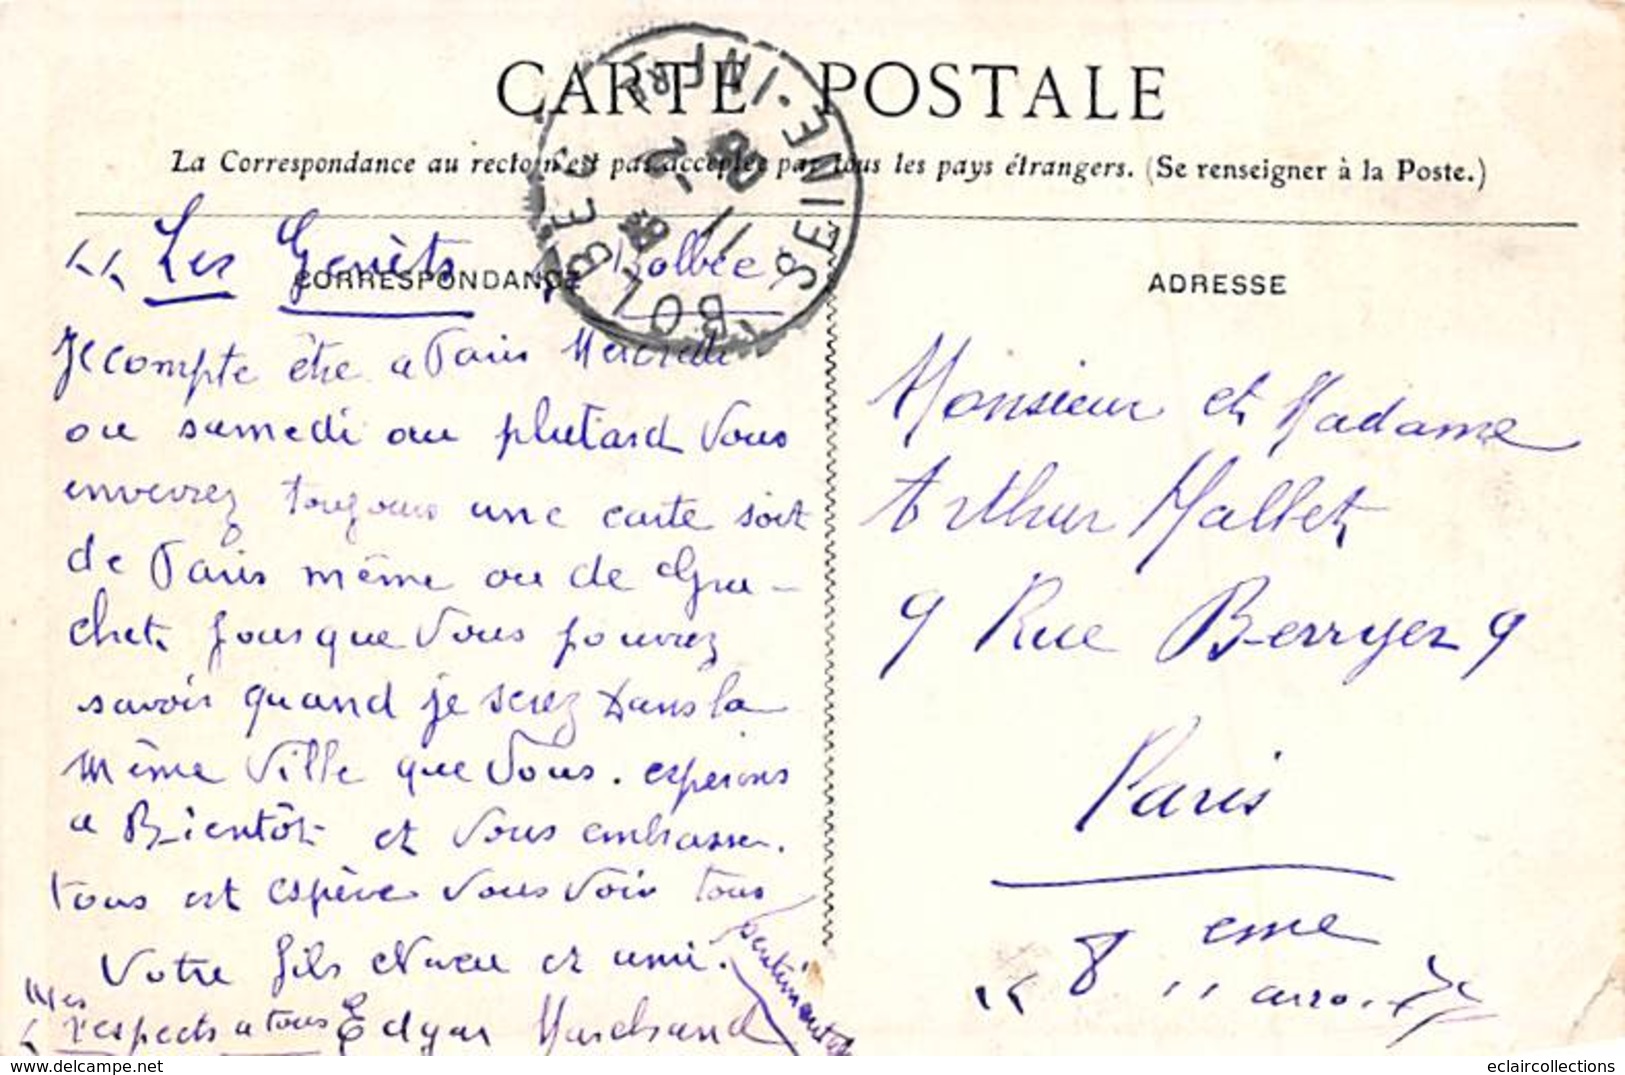 CARTE POSTALE
La Correspondance au recto n'est pas acceptée par tous les pays étrangers. (Se renseigner à la Poste.)
BOLBEC SEINE-INFRE
CORRESPONDANCE
ADRESSE
" Les Genêts Bolbec
Je compte être a Paris Mercredi
ou samedi au plutard Vous
enverrez toujours une carte soit
de Paris même ou de Gru-
chet pour que Vous pouvrez
savoir quand je serez Dans la
même Ville que Vous. esperons
a Bientôt et Vous embrasser.
tous et espère Vous Voir tous
Votre fils Neveu et ami.
sentiments
Mes
respects a tous Edgar Marchand
Monsieur et Madame
Arthur Mallet
9 Rue Berryer 9
Paris
" 8 eme " arro.
eclaircollections